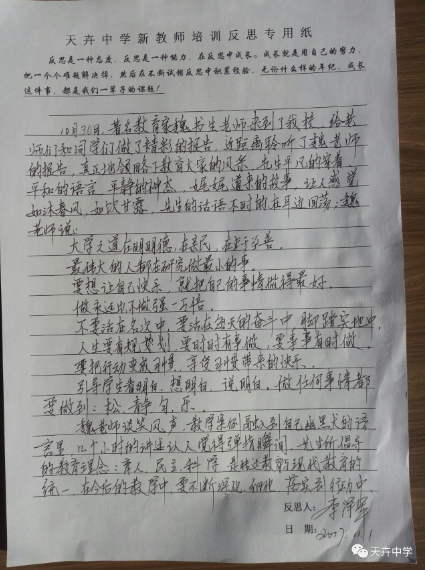 天卉中学新教师培训反思专用纸
反思是一种态度，反思是一种能力，在反思中成长。成长就是用自己的努力，
把一个个难题解决掉，然后在不断试错反思中积累经验，无论什么样的年纪，成长
这件事，都是我们一辈子的课题！
10月30日，著名教育家魏书生老师来到了我校，给老
师们和同学们做了精彩的报告，近距离聆听了魏老师
的报告，真正地领略了教育大家的风采，先生平凡的穿着
平和的语言，平静的神态，娓娓道来的故事，让人感觉
如沐春风，如饮甘露，先生的话语不时的在耳边回荡：魏
老师说：
大学之道在明明德，在亲民，在止于至善。
最伟大的人都在研究做最小的事。
要想让自己快乐，就把自己的事情做得最好。
做永远比不做强一万倍。
不要活在名次中，要活在每天的奋斗中，脚踏实地中，
人生要有规划，要时时有事做，要事事有时做。
要把行动变成习惯，享受习惯带来的快乐。
引导学生看明白，想明白，说明白，做任何事情都
要做到：松、静、匀、乐。
魏老师谈笑风声，教学案例融入到自己幽默的语
言里，几个小时的讲述让人觉得弹指瞬间，先生所倡导
的教育理念：育人、民主、科学 是传统教育现代教育的
统一，在今后的教学中，要不断学习，细化，落实到行动中
反思人：李泽军
日 期：2017.11.1
天卉中学